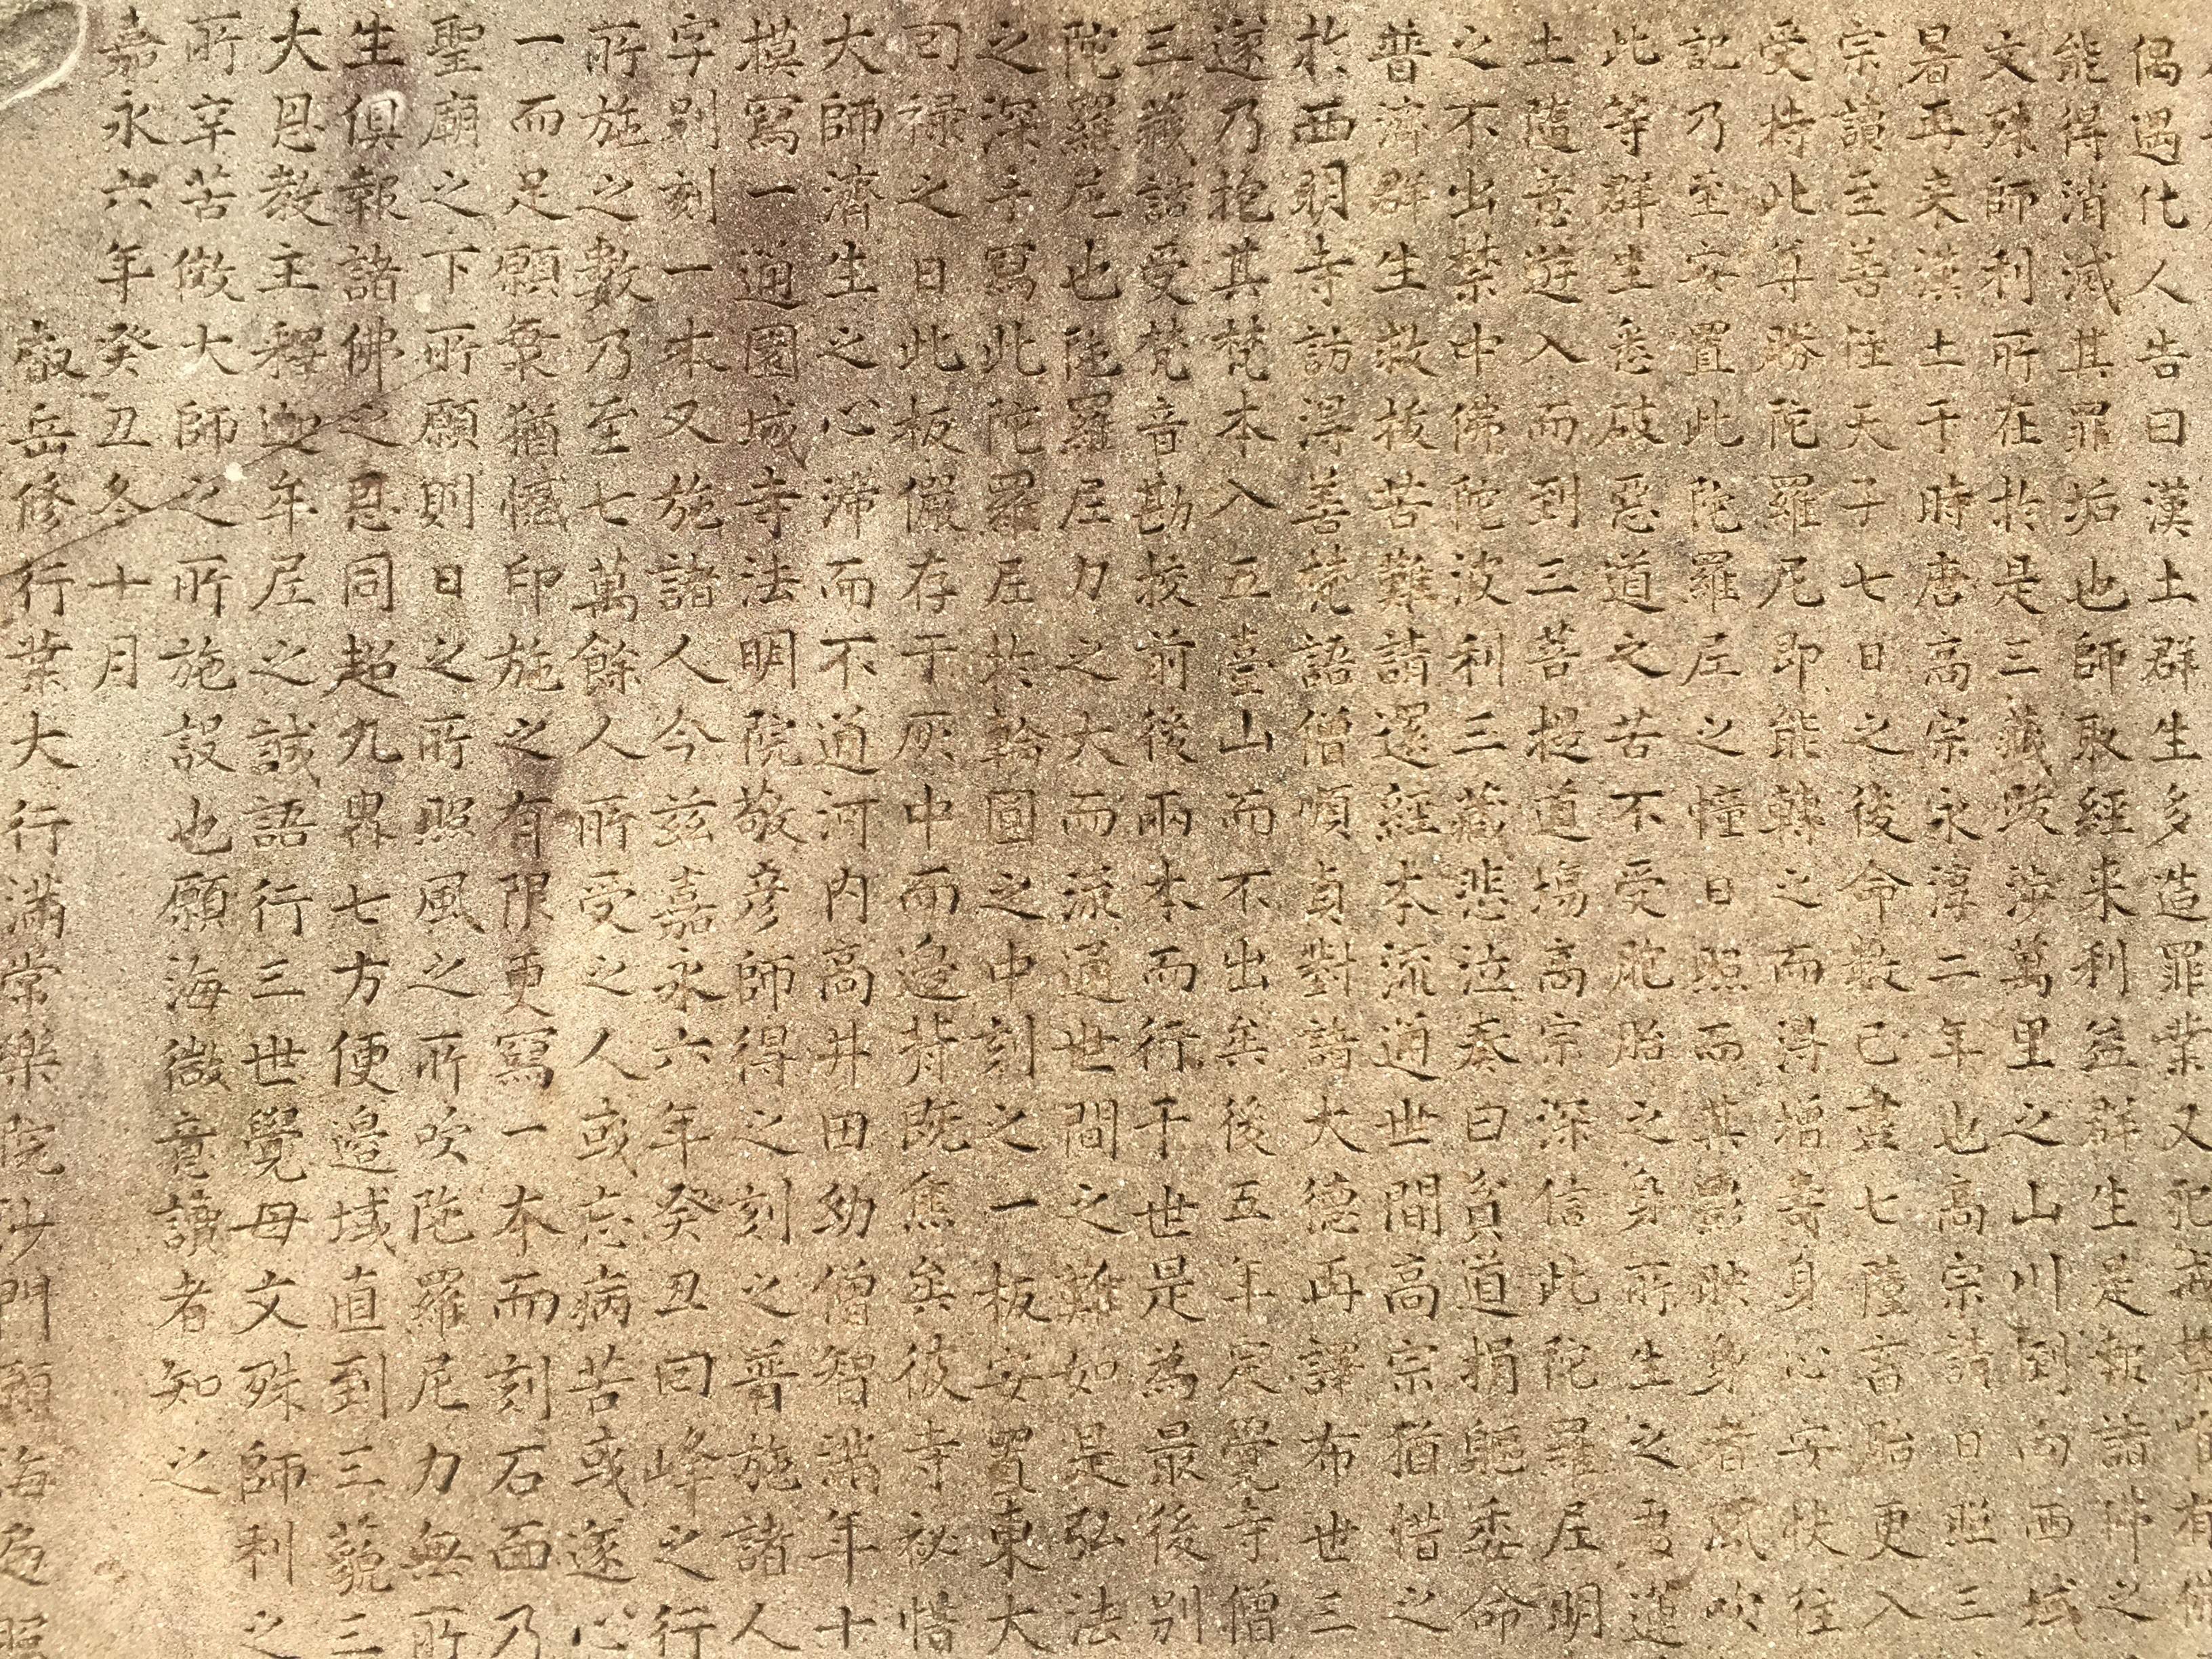 偶遇化人告曰漢土群生多造罪業又犯
能得消滅其罪垢也師取經来利益群生是報諸佛之
文殊師利所在於是三藏跋涉萬里之山川到向西域
暑再来漢土于時唐高宗永淳二年也高宗請日照三
宗讀至善住天子七日之後命数已盡七薩畜胎更入
受持此尊勝陀羅尼即能轉之而得增壽身心安快往
記乃至安置此陀羅尼之幢日照而其影映身者風吹
此等群生悉破惡道之苦不受胞胎之身所生之處蓮
土隨意遊入而到三菩提道場高宗深信此陀羅尼明
之不出禁中佛陀波利三藏悲泣奏曰貧道捐軀委命
普濟群生救拔苦難請還經本流通世間高宗猶惜之
於西明寺訪得善梵語僧順貞對諸大德再譯布世三
遂乃抱其梵本入五臺山而不出矣後五年定覺寺僧
三藏諮受梵音勘挍前後兩本而行于世是為最後别
陀羅尼也陀羅尼力之大而流通世間之難如是弘法
之深手寫此陀羅尼於輪圓之中刻之一板安置東大
司禄之日此板儼存于灰中而邊背既焦矣彼寺秘惜
大師濟生之心滞而不通河内高井田幼僧智満年十
摸寫一通園城寺法明院敬彦師得之刻之普施諸人
字别刻一本又施諸人今兹嘉永六年癸丑曰峰之行
所施之數乃至七萬餘人所受之人或忘病苦或遂心
一而足願衆猶慍印施之有限更寫一本而刻石面乃
聖廟之下所願則日之所照風之所吹陀羅尼力無所
生俱報諸佛之恩同超九界七方便邉域直到三藐三
大恩教主釋迦牟尼之誠語行三世覺母文殊師利之
所辛苦微大師之所施設也願海微意讀者知之
嘉永六年癸丑冬十月
叡岳修行業大行満常樂院沙門願海